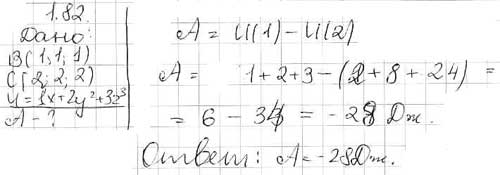 1.82.
Дано:
B(1; 1; 1)
C(2; 2; 2)
U=1x+2y²+3z³
A - ?
A = U(1) - U(2)
A = 1+2+3-(2+8+24) =
= 6 - 34 = -28 Дж.
Ответ: A = -28Дж.